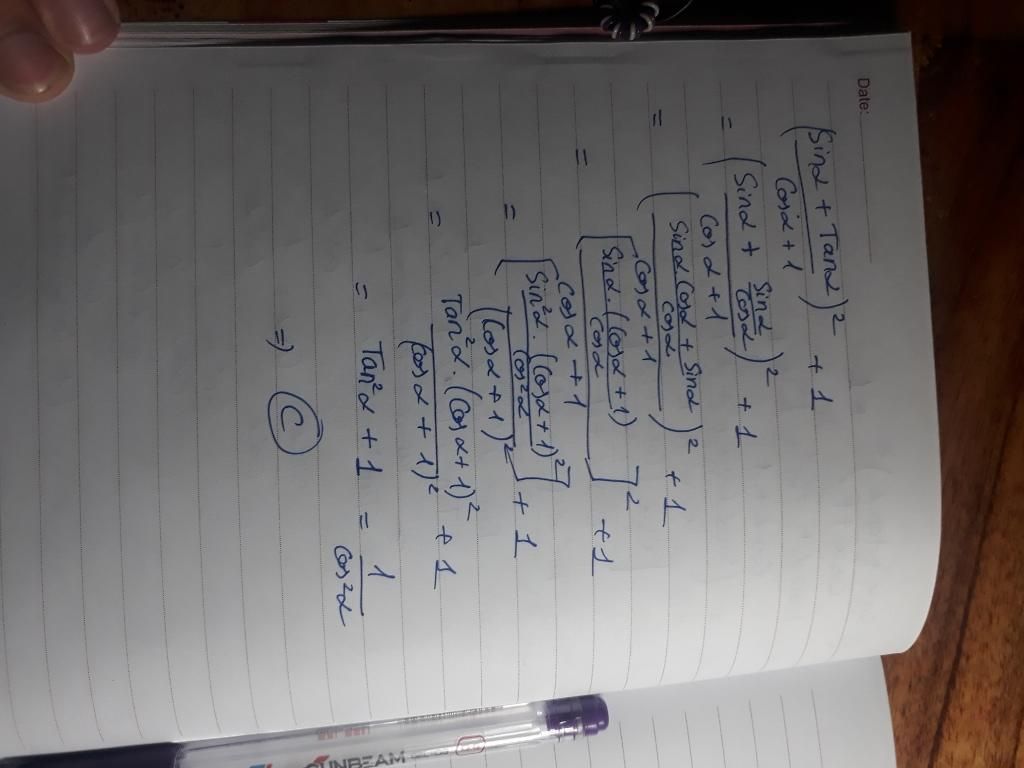 Date:
(Sinα + Tanα / Cosα + 1)² + 1
= (Sinα + Sinα/Cosα / Cosα + 1)² + 1
= (Sinα Cosα + Sinα / Cosα / Cosα + 1)² + 1
= [Sinα. (Cosα + 1) / Cosα / Cosα + 1]² + 1
= [Sin²α. (Cosα + 1)² / Cos²α / (Cosα + 1)²] + 1
= Tan²α. (Cosα + 1)² / (Cosα + 1)² + 1
= Tan²α + 1 = 1 / Cos²α
=> C
SUNBEAM